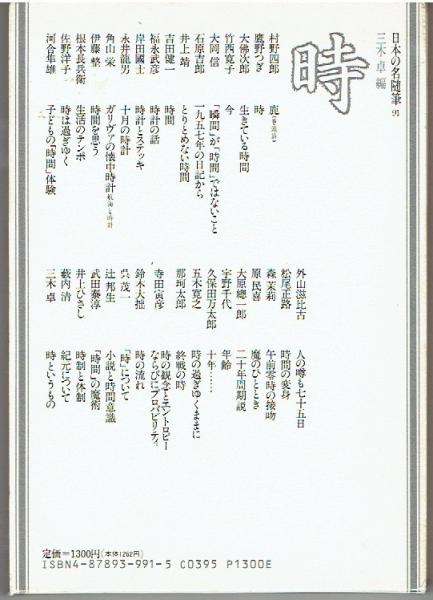 日本の名随筆 91
三木卓編
時
村野四郎 鹿(巻頭詩)
鷹野つぎ 時
大佛次郎 生きている時間
竹西寛子 今
大岡信 「瞬間」が「時間」ではないこと
石原吉郎 一九五七年の日記から
井上靖 とりとめない時間
吉田健一 時間
福永武彦 時計の話
岸田國士 時計とステッキ
永井龍男 十月の時計
角山栄 ガリヴァの懐中時計 航海と時計
伊藤整 時間を思う
根本長兵衛 生活のテンポ
佐野洋子 時は過ぎゆく
河合隼雄 子どもの「時間」体験
外山滋比古 人の噂も七十五日
松尾正路 時間の変身
森茉莉 午前零時の接吻
原民喜 魔のひととき
大原總一郎 二十年周期説
宇野千代 年齢
久保田万太郎 十年……
五木寛之 時の過ぎゆくままに
那珂太郎 終戦の時
寺田寅彦 時の観念とエントロピー
ならびにプロバビリティ
鈴木大拙 時の流れ
呉茂一 「時」について
辻邦生 小説と時間意識
武田泰淳 「時間」の魔術
井上ひさし 時制と体制
藪内清 紀元について
三木卓 時というもの
定価=1300円(本体1262円)
ISBN4-87893-991-5 C0395 P1300E